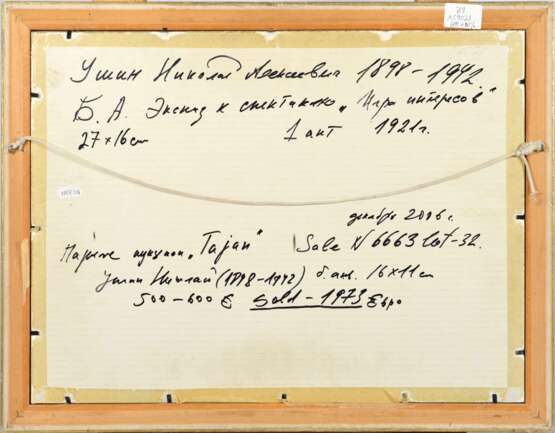 Ушин Николай Алексеевич 1898-1942.
Б. А. Эскиз к спектаклю „Игра интересов"
27×16см 1 акт 1921г.
декабрь 2006г.
Париж аукцион „Tajan" Sale N 6663 lot-32.
Ушин Николай (1898-1942) б. ак. 16×11см
500-600 € Sold-1973 Евро